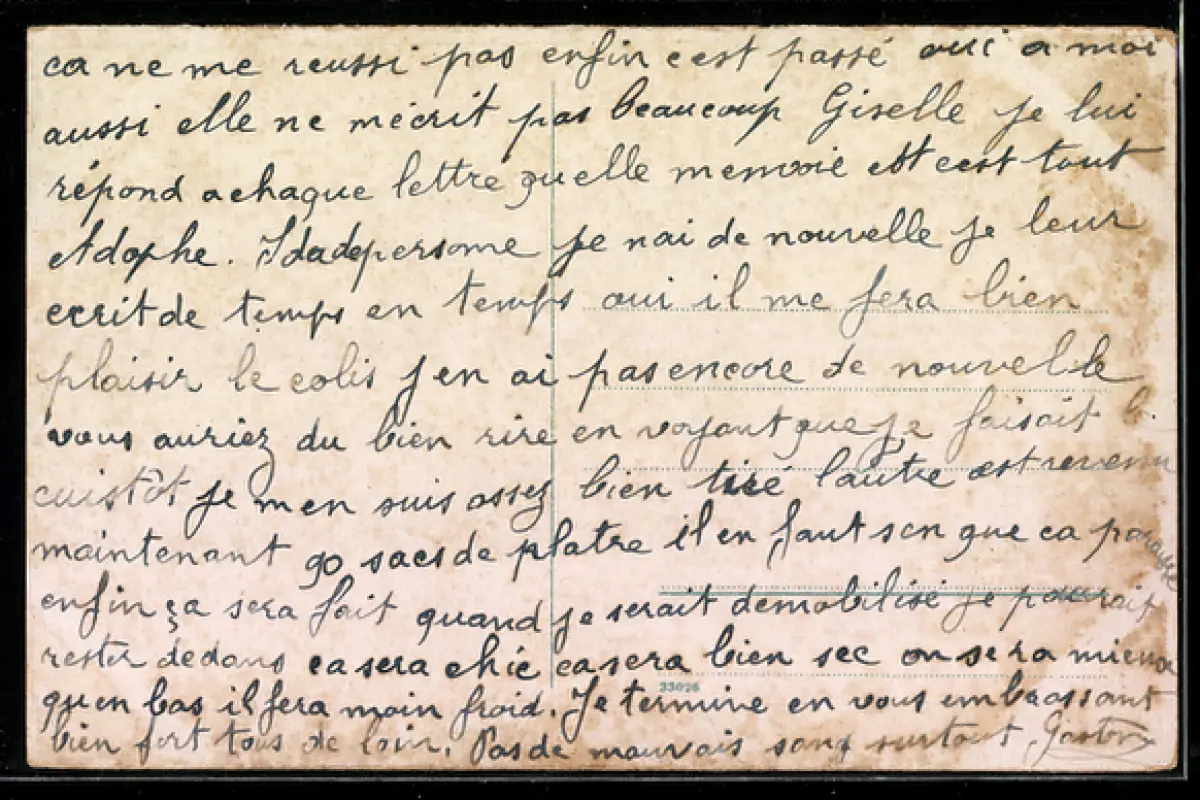 ca ne me reussi pas enfin cest passé oui a moi
aussi elle ne mécrit pas beaucoup Giselle je lui
répond a chaque lettre quelle menvoie et cest tout
Adophe. Idadepersome je nai de nouvelle je leur
ecrit de temps en temps oui il me fera bien
plaisir le colis jen ai pas encore de nouvelle
vous auriez du bien rire en voyant que je faisait le
cuistôt je men suis assez bien tiré lautre est revenu
maintenant 90 sacs de platre il en faut sen que ca paraisse
enfin ça sera fait quand je serait demobilisé je pourrait
rester dedans ca sera chic ca sera bien sec on sera mieux
quen bas il fera moin froid. Je termine en vous embrassant
33026
bien fort tous de loin. Pas de mauvais sang surtout. Gaston